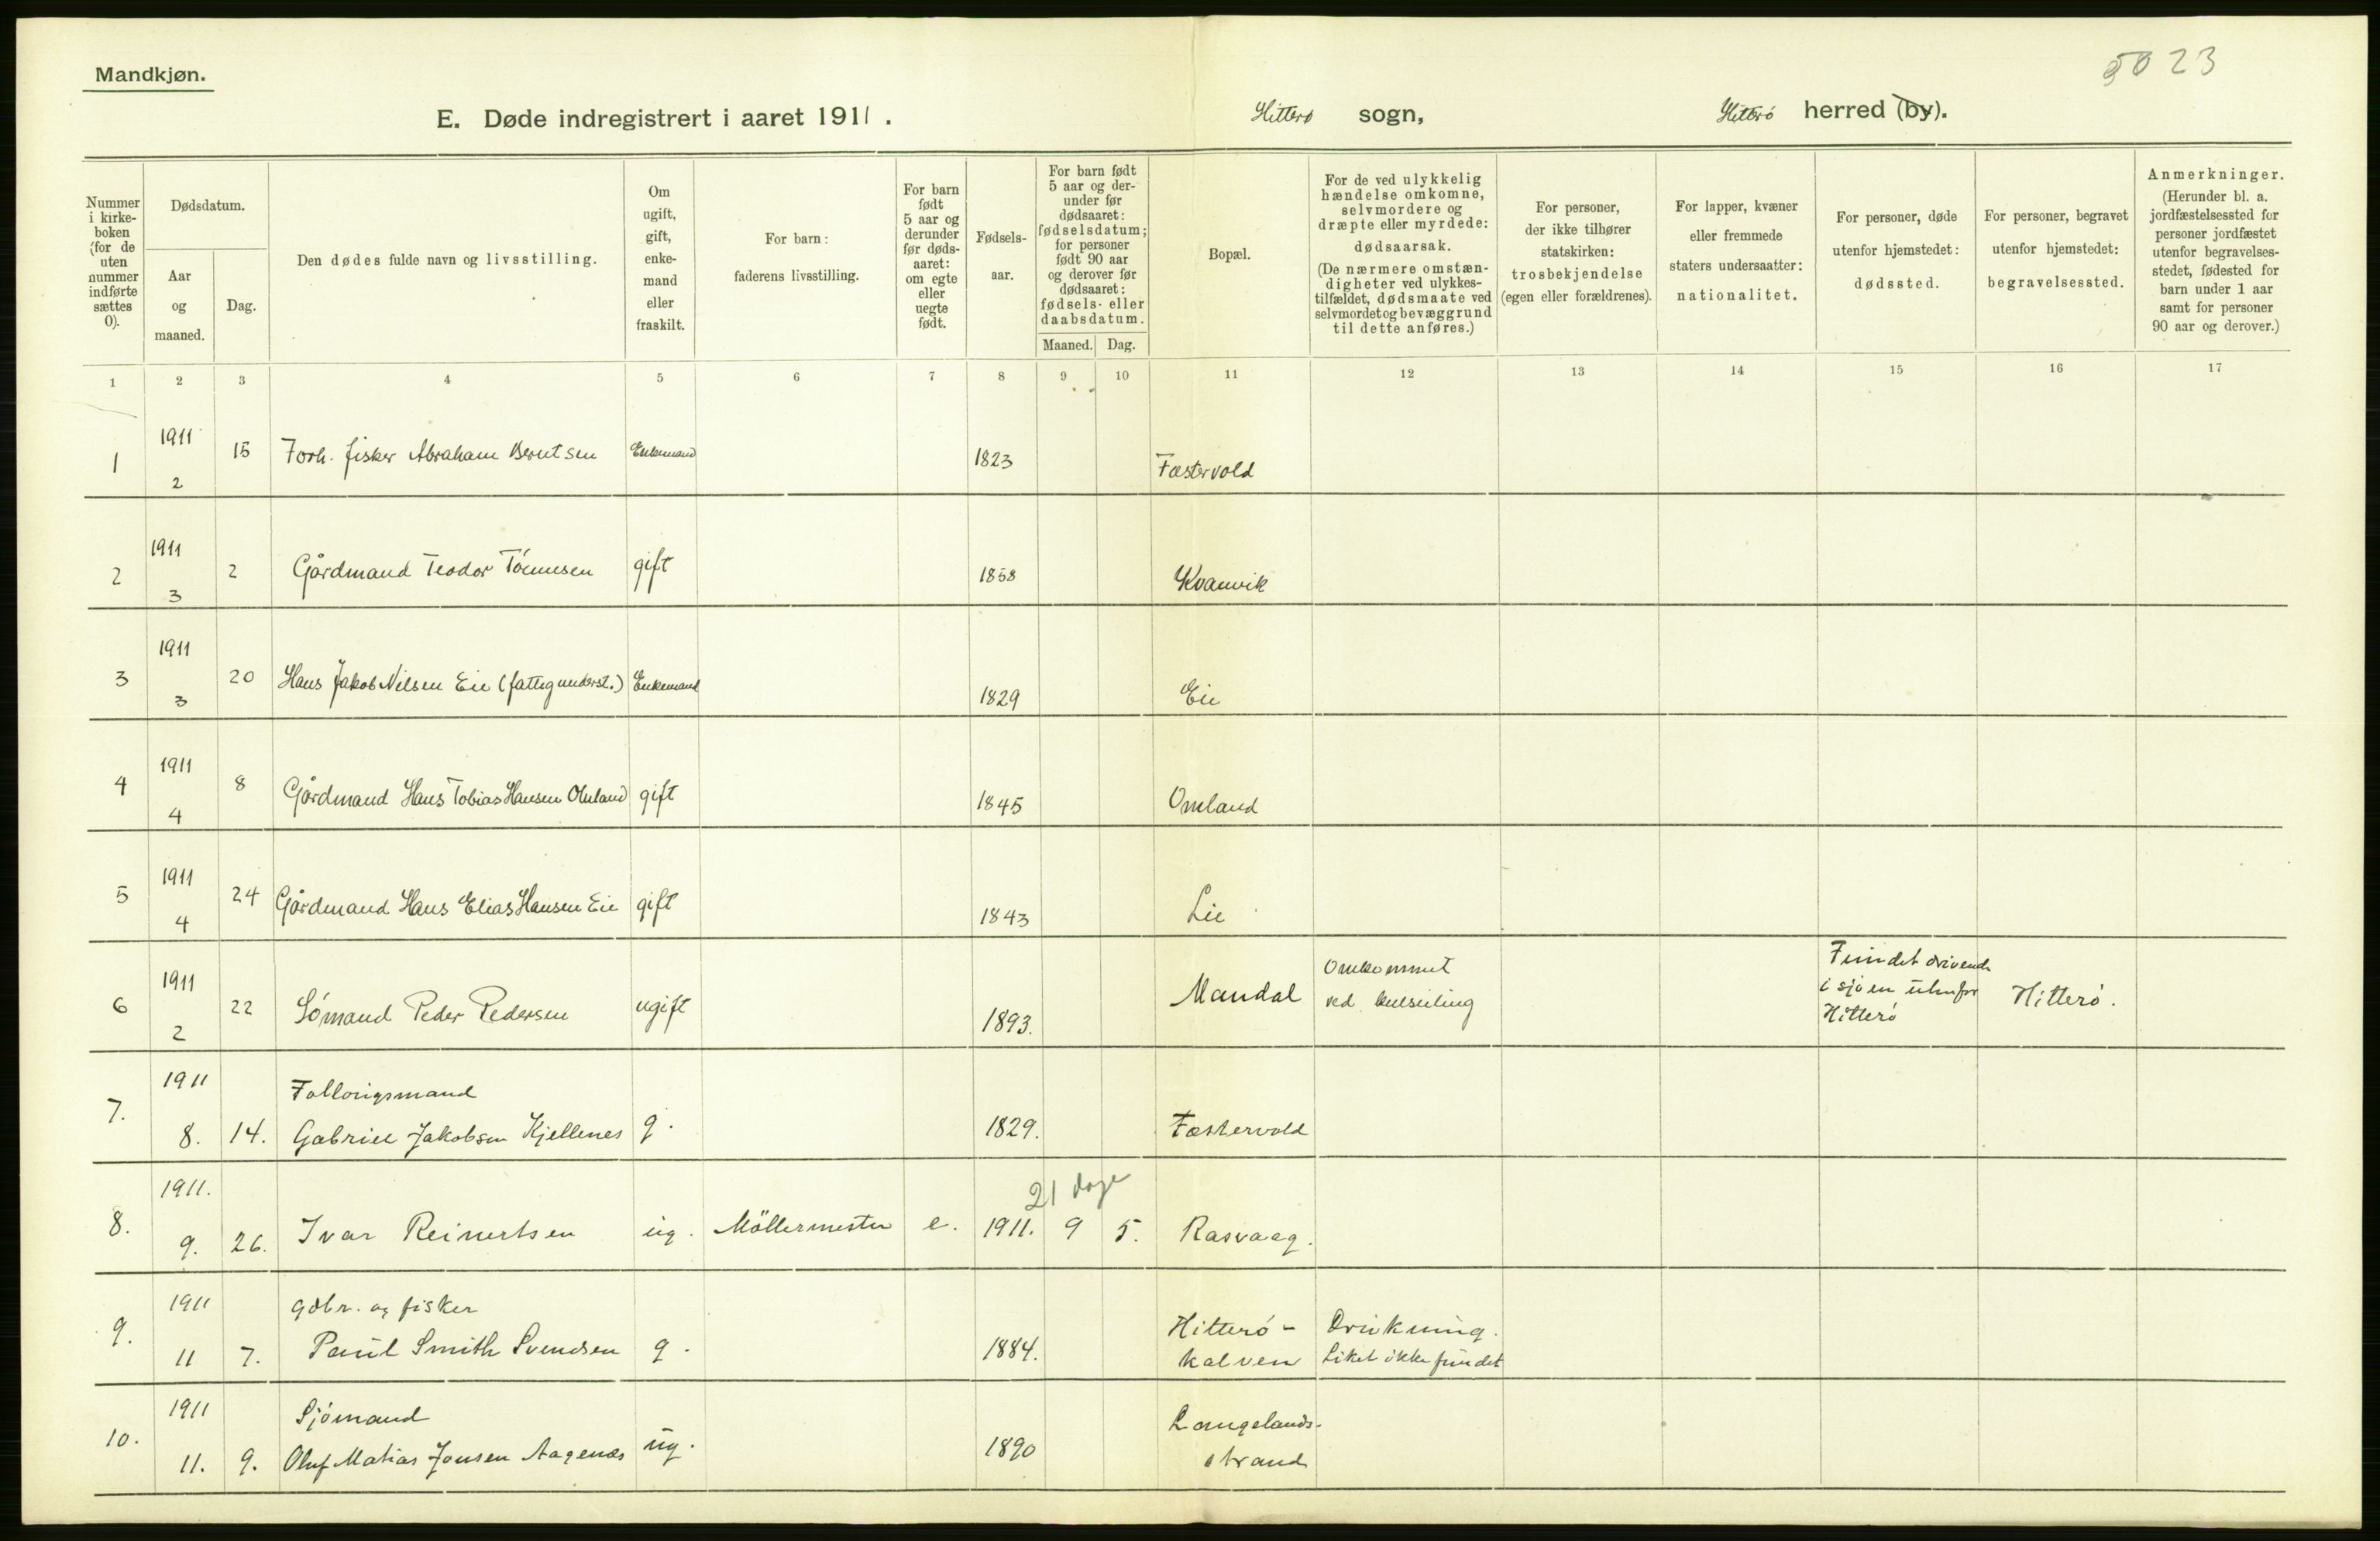 Mandkjøn.
5023
E. Døde indregistrert i aaret 1911.
Hitterø sogn,
Hitterø herred (by).
Nummer i kirke-boken (for de uten nummer indførte sættes 0).
Dødsdatum.
Aar og maaned.
Dag.
Den dødes fulde navn og livsstilling.
Om ugift, gift, enke-mand eller fraskilt.
For barn: faderens livsstilling.
For barn født 5 aar og derunder før døds-aaret: om egte eller uegte født.
Fødsels-aar.
For barn født 5 aar og der-under før dødsaaret: fødselsdatum; for personer født 90 aar og derover før dødsaaret: fødsels- eller daabsdatum.
Maaned. Dag.
Bopæl.
For de ved ulykkelig hændelse omkomne, selvmordere og dræpte eller myrdede: dødsaarsak. (De nærmere omstæn-digheter ved ulykkes-tilfældet, dødsmaate ved selvmordet og bevæggrund til dette anføres.)
For personer, der ikke tilhører statskirken: trosbekjendelse (egen eller forældrenes).
For lapper, kvæner eller fremmede staters undersaatter: nationalitet.
For personer, døde utenfor hjemstedet: dødssted.
For personer, begravet utenfor hjemstedet: begravelsessted.
Anmerkninger. (Herunder bl. a. jordfæstelsessted for personer jordfæstet utenfor begravelses-stedet, fødested for barn under 1 aar samt for personer 90 aar og derover.)
1 2 3 4 5 6 7 8 9 10 11 12 13 14 15 16 17
1 1911 2 15 Forh. fisker Abraham Berntsen Enkemand 1823 Fæstervold
2 1911 3 2 Gårdmand Teodor Tönnesen gift 1858 Kvanvik
3 1911 3 20 Hans Jakob Nilsen Eie (fattigunderst.) Enkemand 1829 Eie
4 1911 4 8 Gårdmand Hans Tobias Hansen Omland gift 1845 Omland
5 1911 4 24 Gårdmand Hans Elias Hansen Eie gift 1843 Lie
6 1911 2 22 Sømand Peder Pedersen ugift 1893. Mandal
Omkommet
ved kulseiling
Fundet drivende
i sjøen utenfor
Hitterø
Hitterø.
7. 1911 8. 14. Follougsmand
Gabriel Jakobsen Kjellenes g. 1829. Fæstervold
21 dage
8. 1911. 9. 26. Ivar Reinertsen ug. Möllermester e. 1911. 9 5. Rasvaag.
9. 1911 11 7. gdbr. og fisker
Paul Smith Svendsen g. 1884.
Hitterø-
kalven
Drukning.
Liket ikke fundet
10. 1911 11. 9. Sjömand
Oluf Matias Jonsen Aagenæs ug. 1890
Langelands-
strand